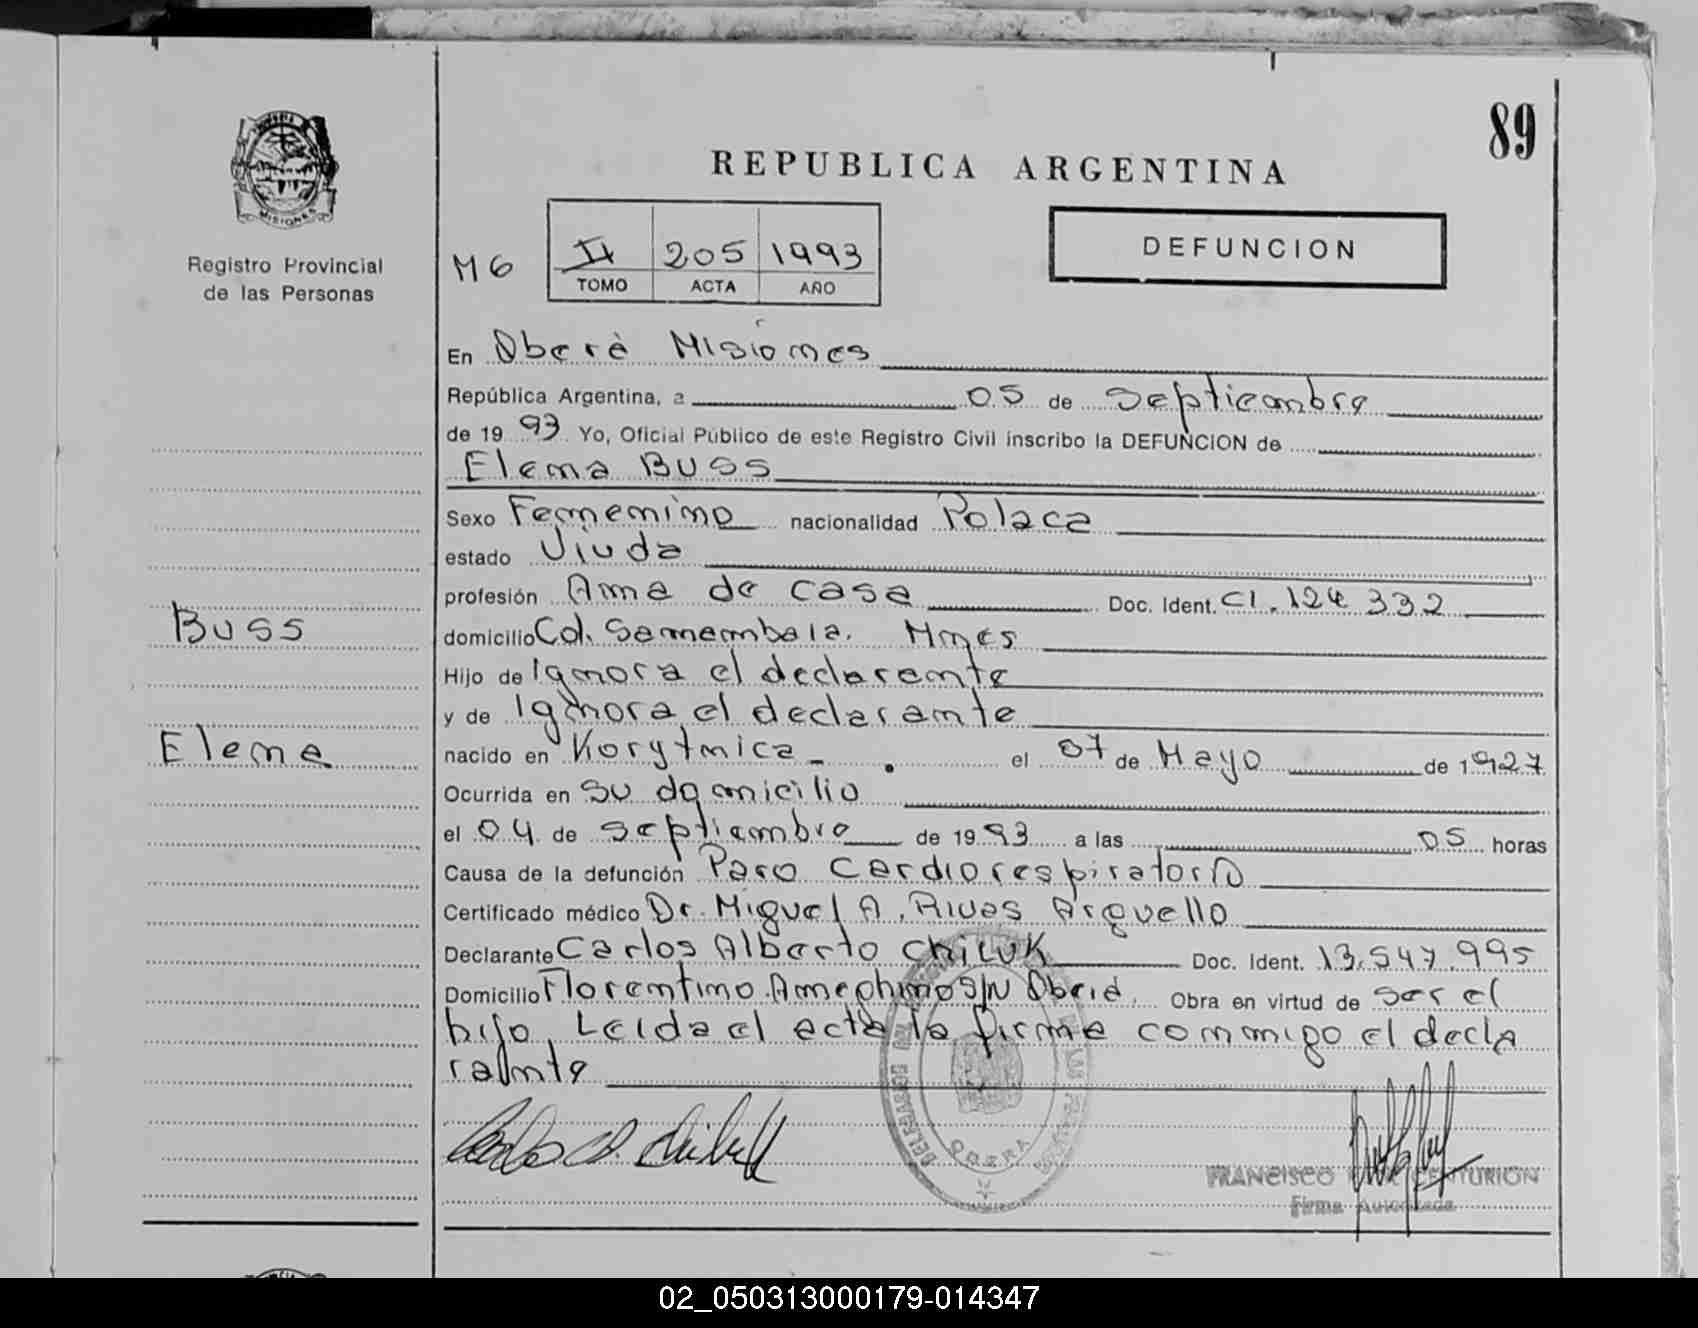 89
REPUBLICA ARGENTINA
MISIONES
Registro Provincial
de las Personas
M6
II 205 1993
TOMO ACTA AÑO
DEFUNCION
En Oberè Misiones
República Argentina, a 05 de Septiembre
de 19 93 Yo, Oficial Público de este Registro Civil inscribo la DEFUNCION de
Elena BUSS
Sexo Femenino nacionalidad Polaca
estado Viuda
profesión Ama de casa Doc. Ident. CI. 124 332
Buss
domicilio Col. Samambaia. Mnes
Hijo de Ignora el declarante
y de Ignora el declarante
Elena
nacido en Korytnica el 07 de Mayo de 1927
Ocurrida en su domicilio
el 04 de septiembre de 19 93 a las 05 horas
Causa de la defunción Paro Cardiorespiratorio
Certificado médico Dr. Miguel A. Rivas Arguello
Declarante Carlos Alberto Chiluk Doc. Ident. 13.547.995
Domicilio Florentino Ameghino S/N Oberá. Obra en virtud de ser el
hijo. Leida el acta la firma conmigo el decla
rante
DELEGACION OBERA
FRANCISCO CENTURION
Firma Autorizada
02_050313000179-014347